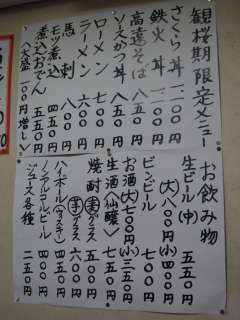 観桜期限定メニュー
さくら丼 一二〇〇円
鉄火丼 一二〇〇円
高遠そば 八五〇円
ソースかつ丼 八五〇円
ローメン 七〇〇円
ラーメン 六〇〇円
馬刺 八〇〇円
モツ煮込
煮込おでん
(大盛 二〇〇円増し)
お飲み物
生ビール(中) 五五〇円
(大)八〇〇円(小)四〇〇円
ビンビール 七〇〇円
お酒(大)七〇〇円(小)三五〇円
生酒(仙醸) 七五〇円
焼酎(麦)グラス 五五〇円
(芋)グラス 六〇〇円
ハイボール 五五〇円
ノンアルコールビール 四五〇円
ジュース各種 二五〇円